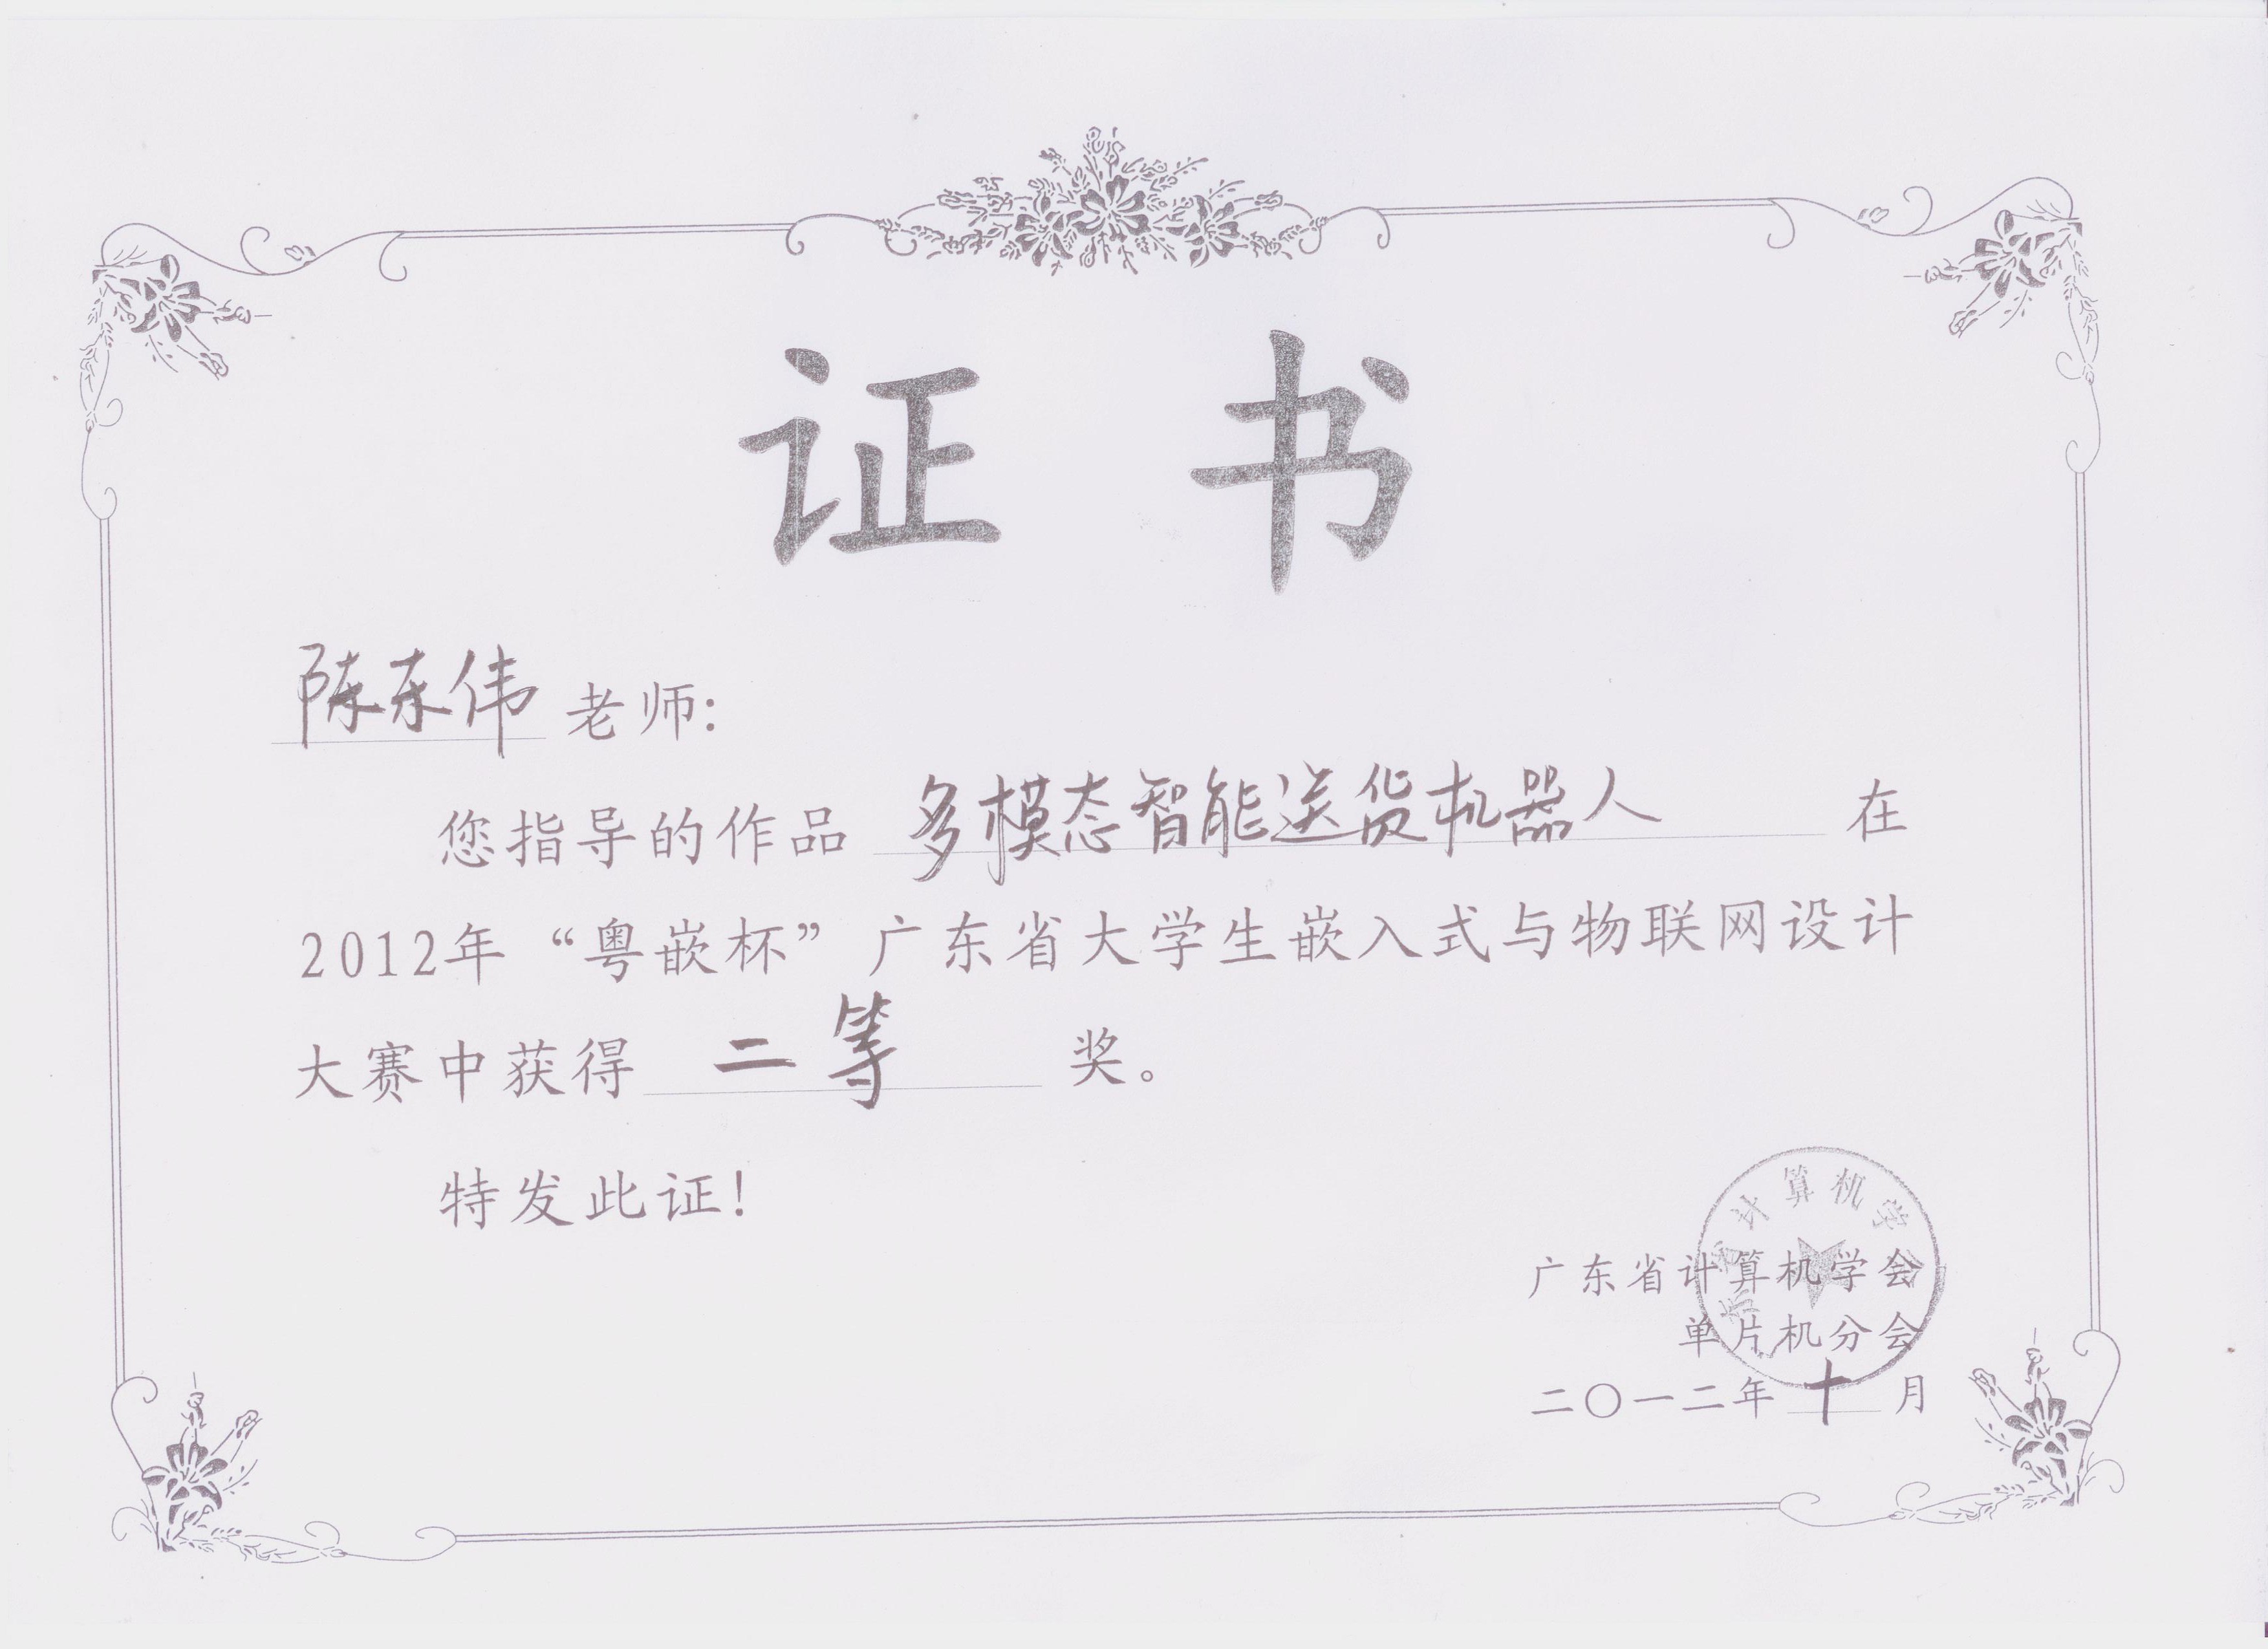 证书
陈东伟老师:
您指导的作品 多模态智能送货机器人 在
2012年“粤嵌杯”广东省大学生嵌入式与物联网设计
大赛中获得 二等 奖。
特发此证!
计算机学
广东省计算机学会
单片机分会
二〇一二年十月